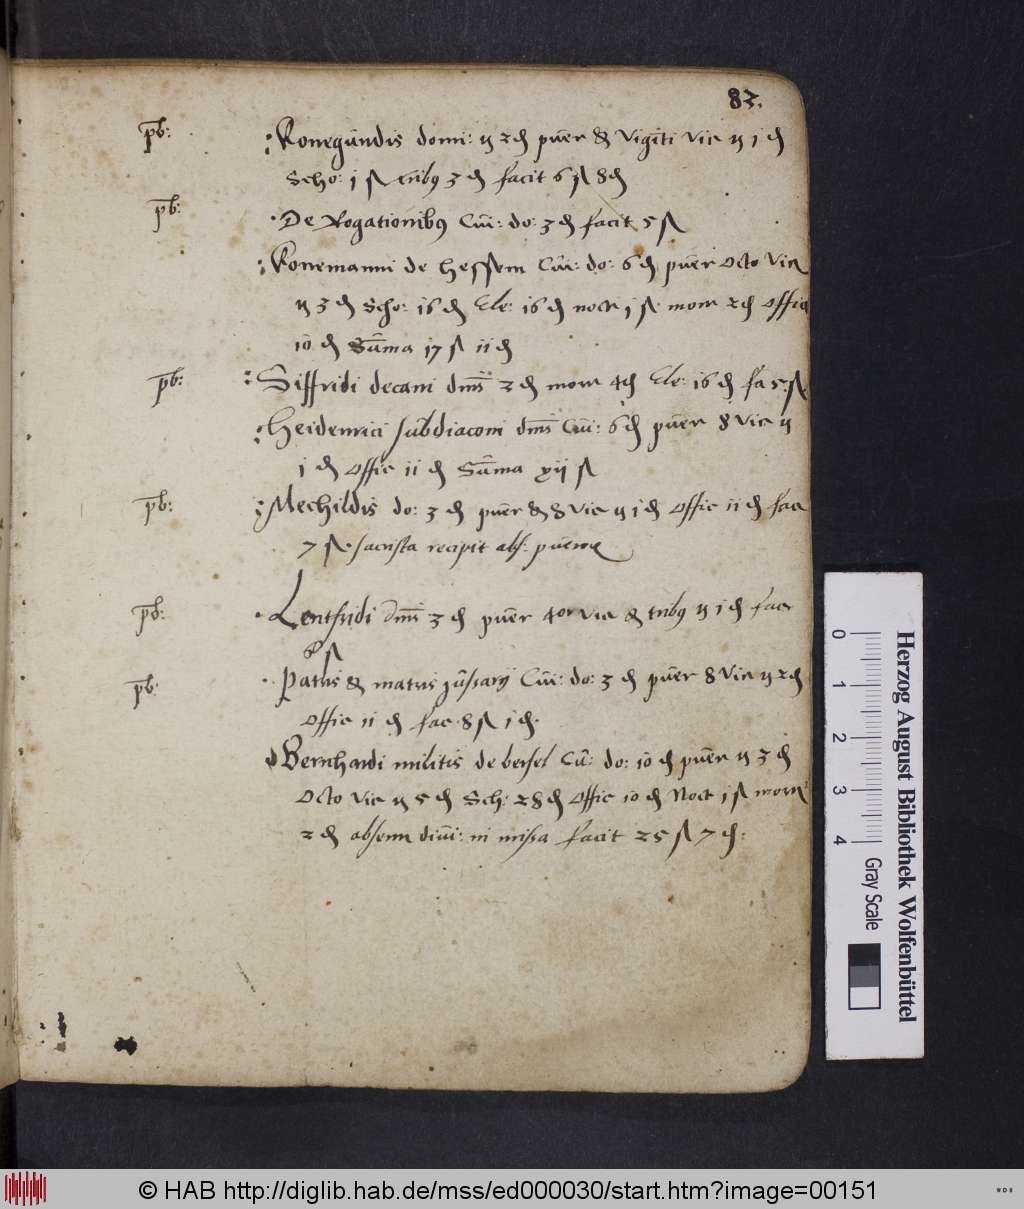 83.
pb: Konegundis domi: ij 2 ₰ puer & viginti vic ij 1 ₰
Scho: 1 ß tribus 3 ₰ facit 6 ß 8 ₰
pb: De Rogationibus Cui: do: 3 ₰ facit 5 ß
Konemanni de Hessem Cui: do: 6 ₰ puer octo vic
ij 3 ₰ Scho: 16 ₰ Ele: 16 ₰ noct 1 ß mom 2 ₰ offic
10 ₰ Suma 17 ß ii ₰
pb: Siffridi decani dms 3 ₰ mom 4 ₰ Ele: 16 ₰ fa 5 ß
Heidenrici subdiaconi dms Cui: 6 ₰ puer 8 vic ij
1 ₰ offic ii ₰ Suma xij ß
pb: Mechildis do: 3 ₰ puer & 8 vic ij 1 ₰ offic ii ₰ fac
7 ß. sacrista recipit abs: puerorum
pb: Lentfridi dms 3 ₰ puer 4or vic & tribus ij 1 ₰ fac
6 ß
pb: Patris & matris Cui: do: 3 ₰ puer 8 vic ij 2 ₰
offic ii ₰ fac 8 ß 1 ₰.
Bernhardi militis de bersel Cui: do: 10 ₰ puer ij 3 ₰
Octo vic ij 5 ₰ Sch: 28 ₰ offic 10 ₰ Noct 1 ß mom
2 ₰ absenn diui: in missa facit 25 ß 7 ₰:
0 1 2 3 4
Herzog August Bibliothek Wolfenbüttel
Gray Scale
© HAB http://diglib.hab.de/mss/ed000030/start.htm?image=00151